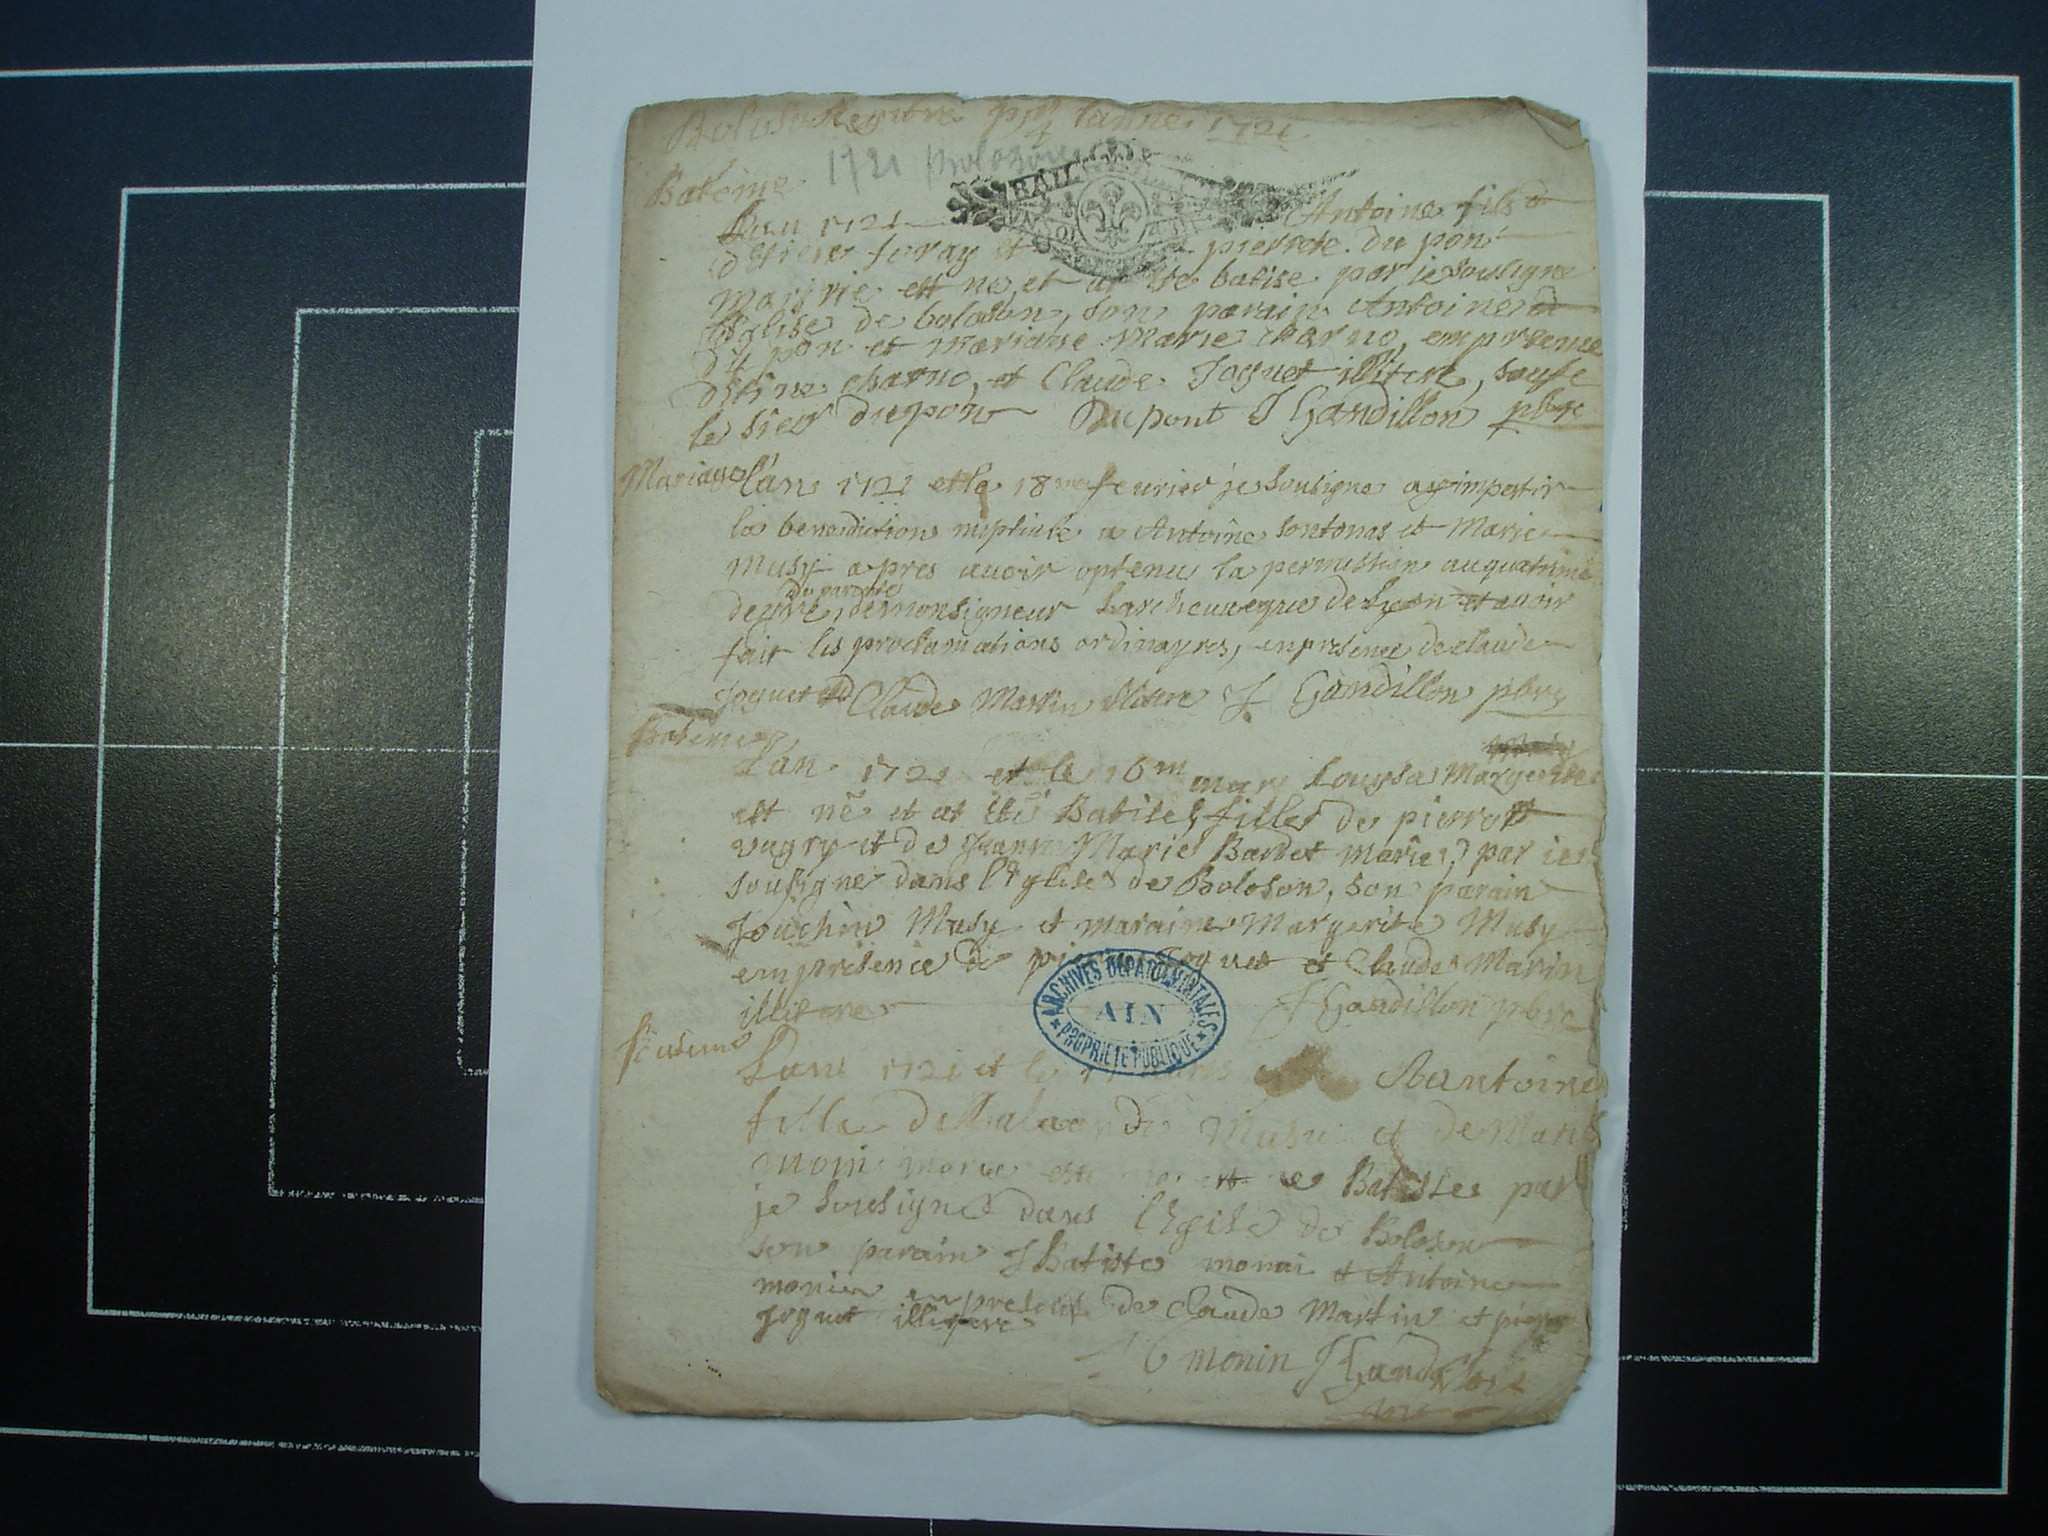 Boloson Registre pour lannee 1721
1721 Bolozon
BAILL
Batême
L'an 1721 Antoine fils
d'Etiene et pierrete du pont
Marjrie est ne et a ete batise par je sousigne
Eglise de boloson, son parain Antoine
du pon et maraine Marie charno, en presence
charno, et Claude Joguet illitere, saufe
le sieur dupon Dupont J Gandillon pbre
Mariage L'an 1721 et le 18me feurier je sousigne ay impartir
la benediction nuptiale a Antoine sontonas et Marie
Musy apres auoir optenu la permission au quatrieme
du parante
degre, de monsigneur Larcheueque de Lyon et auoir
fait les proclamations ordinayres, en presence de claude
Joguet et Claude Martin illitere J Gandillon pbre
Bateme
L'an 1721 et le 16m mars Louysa Margerite
est né et at eté Batise, fille de pierre
vugry et de Jeanne Marie Bardet mariés, par je
sousigne dans l'Eglise de Boloson, son parain
Jouachin Musy et maraine Margerite Musy
en presence de pierre Joguet et Claude Marin
illitere J Gandillon pbre
ARCHIVES DEPARTEMENTALES
AIN
PROPRIETE PUBLIQUE
L'an 1721 et le mars Antoine
fille de Musy et de Marie
monin est Batisée par
je sousigne dans l'Eglise de Boloson
son parain J Batiste monin et Antoine
monin en presence de Claude Martin et pierre
Joguet illitere
monin J Gandillon